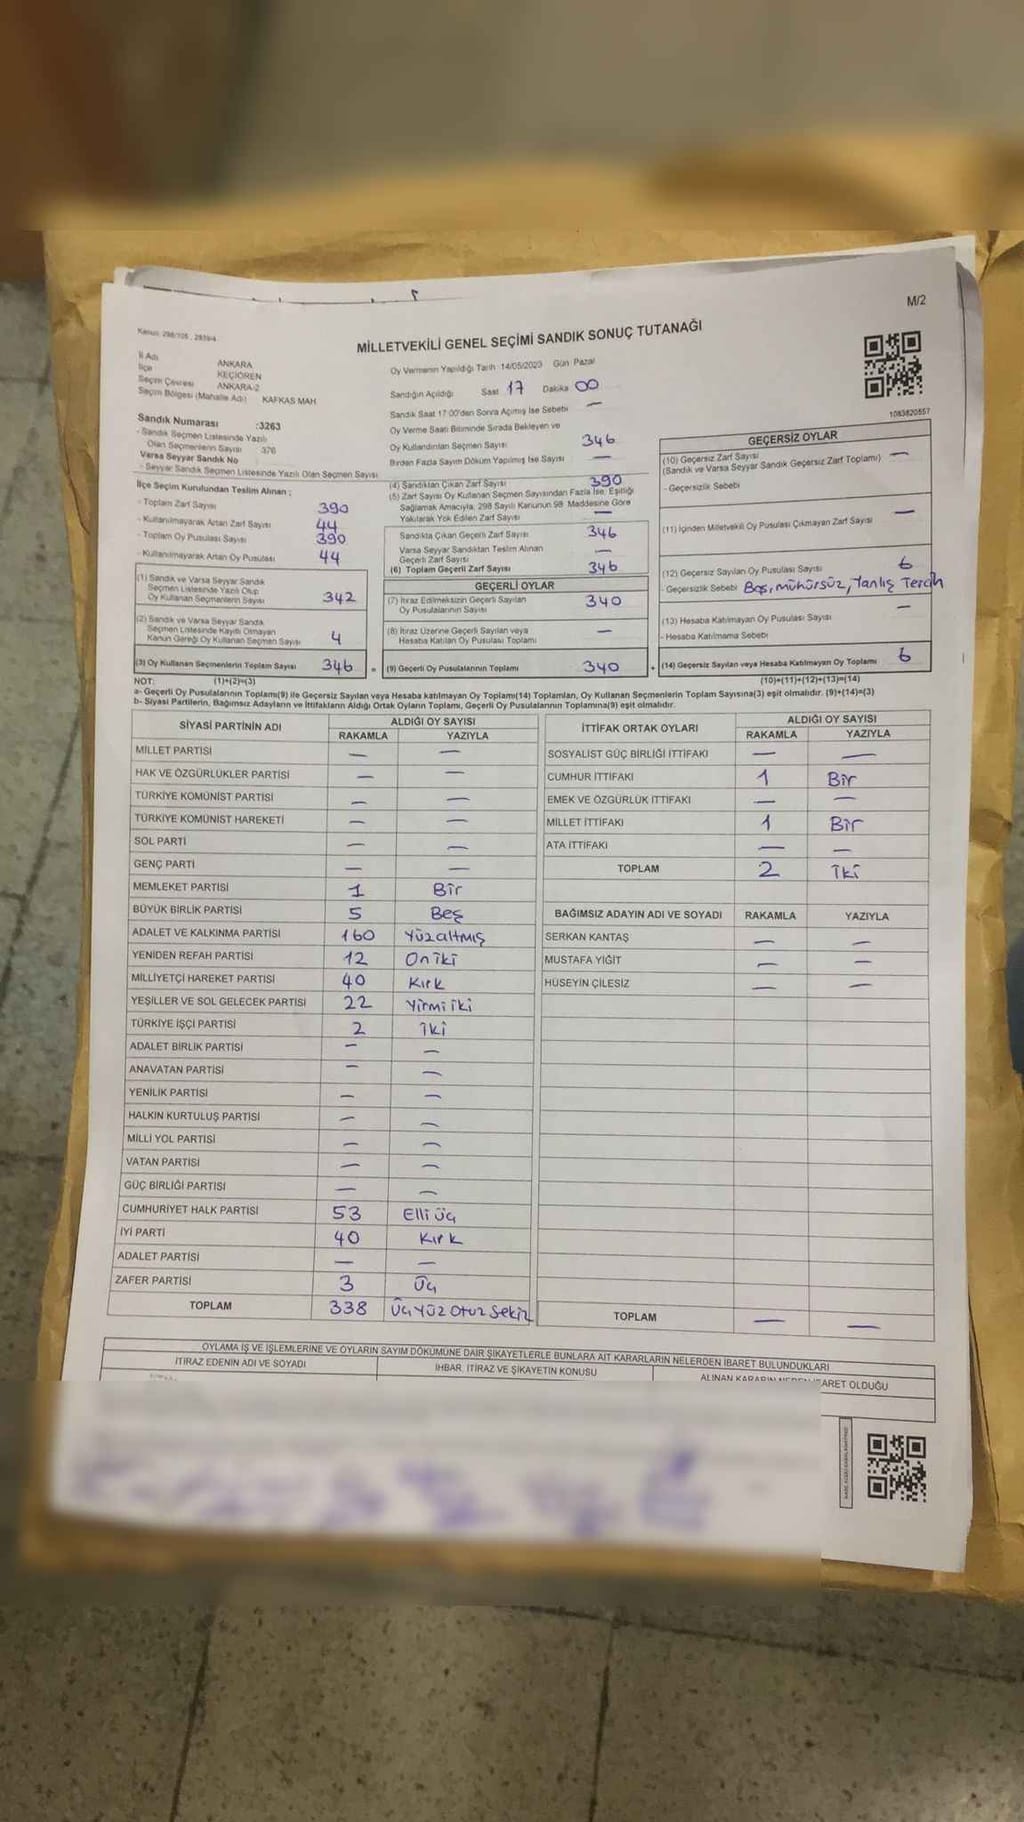 M/2
Kanun: 298/105, 2839/4
MİLLETVEKİLİ GENEL SEÇİMİ SANDIK SONUÇ TUTANAĞI
İl Adı ANKARA
İlçe KEÇİÖREN
Seçim Çevresi ANKARA-2
Seçim Bölgesi (Mahalle Adı) KAFKAS MAH
Oy Vermenin Yapıldığı Tarih 14/05/2023 Gün Pazar
Sandığın Açıldığı Saat 17 Dakika 00
Sandık Saat 17:00'den Sonra Açılmış İse Sebebi —
1083820557
Sandık Numarası :3263
- Sandık Seçmen Listesinde Yazılı
Olan Seçmenlerin Sayısı 376
Varsa Seyyar Sandık No
- Seyyar Sandık Seçmen Listesinde Yazılı Olan Seçmen Sayısı
İlçe Seçim Kurulundan Teslim Alınan ;
- Toplam Zarf Sayısı 390
- Kullanılmayarak Artan Zarf Sayısı 44
- Toplam Oy Pusulası Sayısı 390
- Kullanılmayarak Artan Oy Pusulası 44
(1) Sandık ve Varsa Seyyar Sandık
Seçmen Listesinde Yazılı Olup
Oy Kullanan Seçmenlerin Sayısı 342
(2) Sandık ve Varsa Seyyar Sandık
Seçmen Listesinde Kaydı Olmayan
Kanun Gereği Oy Kullanan Seçmen Sayısı 4
(3) Oy Kullanan Seçmenlerin Toplam Sayısı 346 =
(1)+(2)=(3)
Oy Verme Saati Bitiminde Sırada Bekleyen ve
Oy Kullandırılan Seçmen Sayısı 346
Birden Fazla Sayım Döküm Yapılmış İse Sayısı —
(4) Sandıktan Çıkan Zarf Sayısı 390
(5) Zarf Sayısı Oy Kullanan Seçmen Sayısından Fazla İse, Eşitliği
Sağlamak Amacıyla, 298 Sayılı Kanunun 98. Maddesine Göre
Yakılarak Yok Edilen Zarf Sayısı —
Sandıkta Çıkan Geçerli Zarf Sayısı 346
Varsa Seyyar Sandıktan Teslim Alınan
Geçerli Zarf Sayısı —
(6) Toplam Geçerli Zarf Sayısı 346
GEÇERLİ OYLAR
(7) İtiraz Edilmeksizin Geçerli Sayılan
Oy Pusulalarının Sayısı 340
(8) İtiraz Üzerine Geçerli Sayılan veya
Hesaba Katılan Oy Pusulası Toplamı —
(9) Geçerli Oy Pusulalarının Toplamı 340 +
GEÇERSİZ OYLAR
(10) Geçersiz Zarf Sayısı —
(Sandık ve Varsa Seyyar Sandık Geçersiz Zarf Toplamı)
- Geçersizlik Sebebi
(11) İçinden Milletvekili Oy Pusulası Çıkmayan Zarf Sayısı —
(12) Geçersiz Sayılan Oy Pusulası Sayısı 6
- Geçersizlik Sebebi Boş, mühürsüz, Yanlış Tercih
(13) Hesaba Katılmayan Oy Pusulası Sayısı —
- Hesaba Katılmama Sebebi
(14) Geçersiz Sayılan veya Hesaba Katılmayan Oy Toplamı 6
(10)+(11)+(12)+(13)=(14)
NOT:
a- Geçerli Oy Pusulalarının Toplamı(9) ile Geçersiz Sayılan veya Hesaba katılmayan Oy Toplamı(14) Toplamları, Oy Kullanan Seçmenlerin Toplam Sayısına(3) eşit olmalıdır. (9)+(14)=(3)
b- Siyasi Partilerin, Bağımsız Adayların ve İttifakların Aldığı Ortak Oyların Toplamı, Geçerli Oy Pusulalarının Toplamına(9) eşit olmalıdır.
SİYASİ PARTİNİN ADI ALDIĞI OY SAYISI
RAKAMLA YAZIYLA
MİLLET PARTİSİ — —
HAK VE ÖZGÜRLÜKLER PARTİSİ — —
TÜRKİYE KOMÜNİST PARTİSİ — —
TÜRKİYE KOMÜNİST HAREKETİ — —
SOL PARTİ — —
GENÇ PARTİ — —
MEMLEKET PARTİSİ 1 Bir
BÜYÜK BİRLİK PARTİSİ 5 Beş
ADALET VE KALKINMA PARTİSİ 160 Yüzaltmış
YENİDEN REFAH PARTİSİ 12 On iki
MİLLİYETÇİ HAREKET PARTİSİ 40 Kırk
YEŞİLLER VE SOL GELECEK PARTİSİ 22 Yirmi iki
TÜRKİYE İŞÇİ PARTİSİ 2 iki
ADALET BİRLİK PARTİSİ — —
ANAVATAN PARTİSİ — —
YENİLİK PARTİSİ — —
HALKIN KURTULUŞ PARTİSİ — —
MİLLİ YOL PARTİSİ — —
VATAN PARTİSİ — —
GÜÇ BİRLİĞİ PARTİSİ — —
CUMHURİYET HALK PARTİSİ 53 Elli üç
İYİ PARTİ 40 Kırk
ADALET PARTİSİ — —
ZAFER PARTİSİ 3 Üç
TOPLAM 338 Üç Yüz Otuz Sekiz
İTTİFAK ORTAK OYLARI ALDIĞI OY SAYISI
RAKAMLA YAZIYLA
SOSYALİST GÜÇ BİRLİĞİ İTTİFAKI — —
CUMHUR İTTİFAKI 1 Bir
EMEK VE ÖZGÜRLÜK İTTİFAKI — —
MİLLET İTTİFAKI 1 Bir
ATA İTTİFAKI — —
TOPLAM 2 İki
BAĞIMSIZ ADAYIN ADI VE SOYADI RAKAMLA YAZIYLA
SERKAN KANTAŞ — —
MUSTAFA YİĞİT — —
HÜSEYİN ÇİLESİZ — —
TOPLAM — —
OYLAMA İŞ VE İŞLEMLERİNE VE OYLARIN SAYIM DÖKÜMÜNE DAİR ŞİKAYETLERLE BUNLARA AİT KARARLARIN NELERDEN İBARET BULUNDUKLARI
İTİRAZ EDENİN ADI VE SOYADI İHBAR, İTİRAZ VE ŞİKAYETİN KONUSU ALINAN KARARIN NEDEN İBARET OLDUĞU